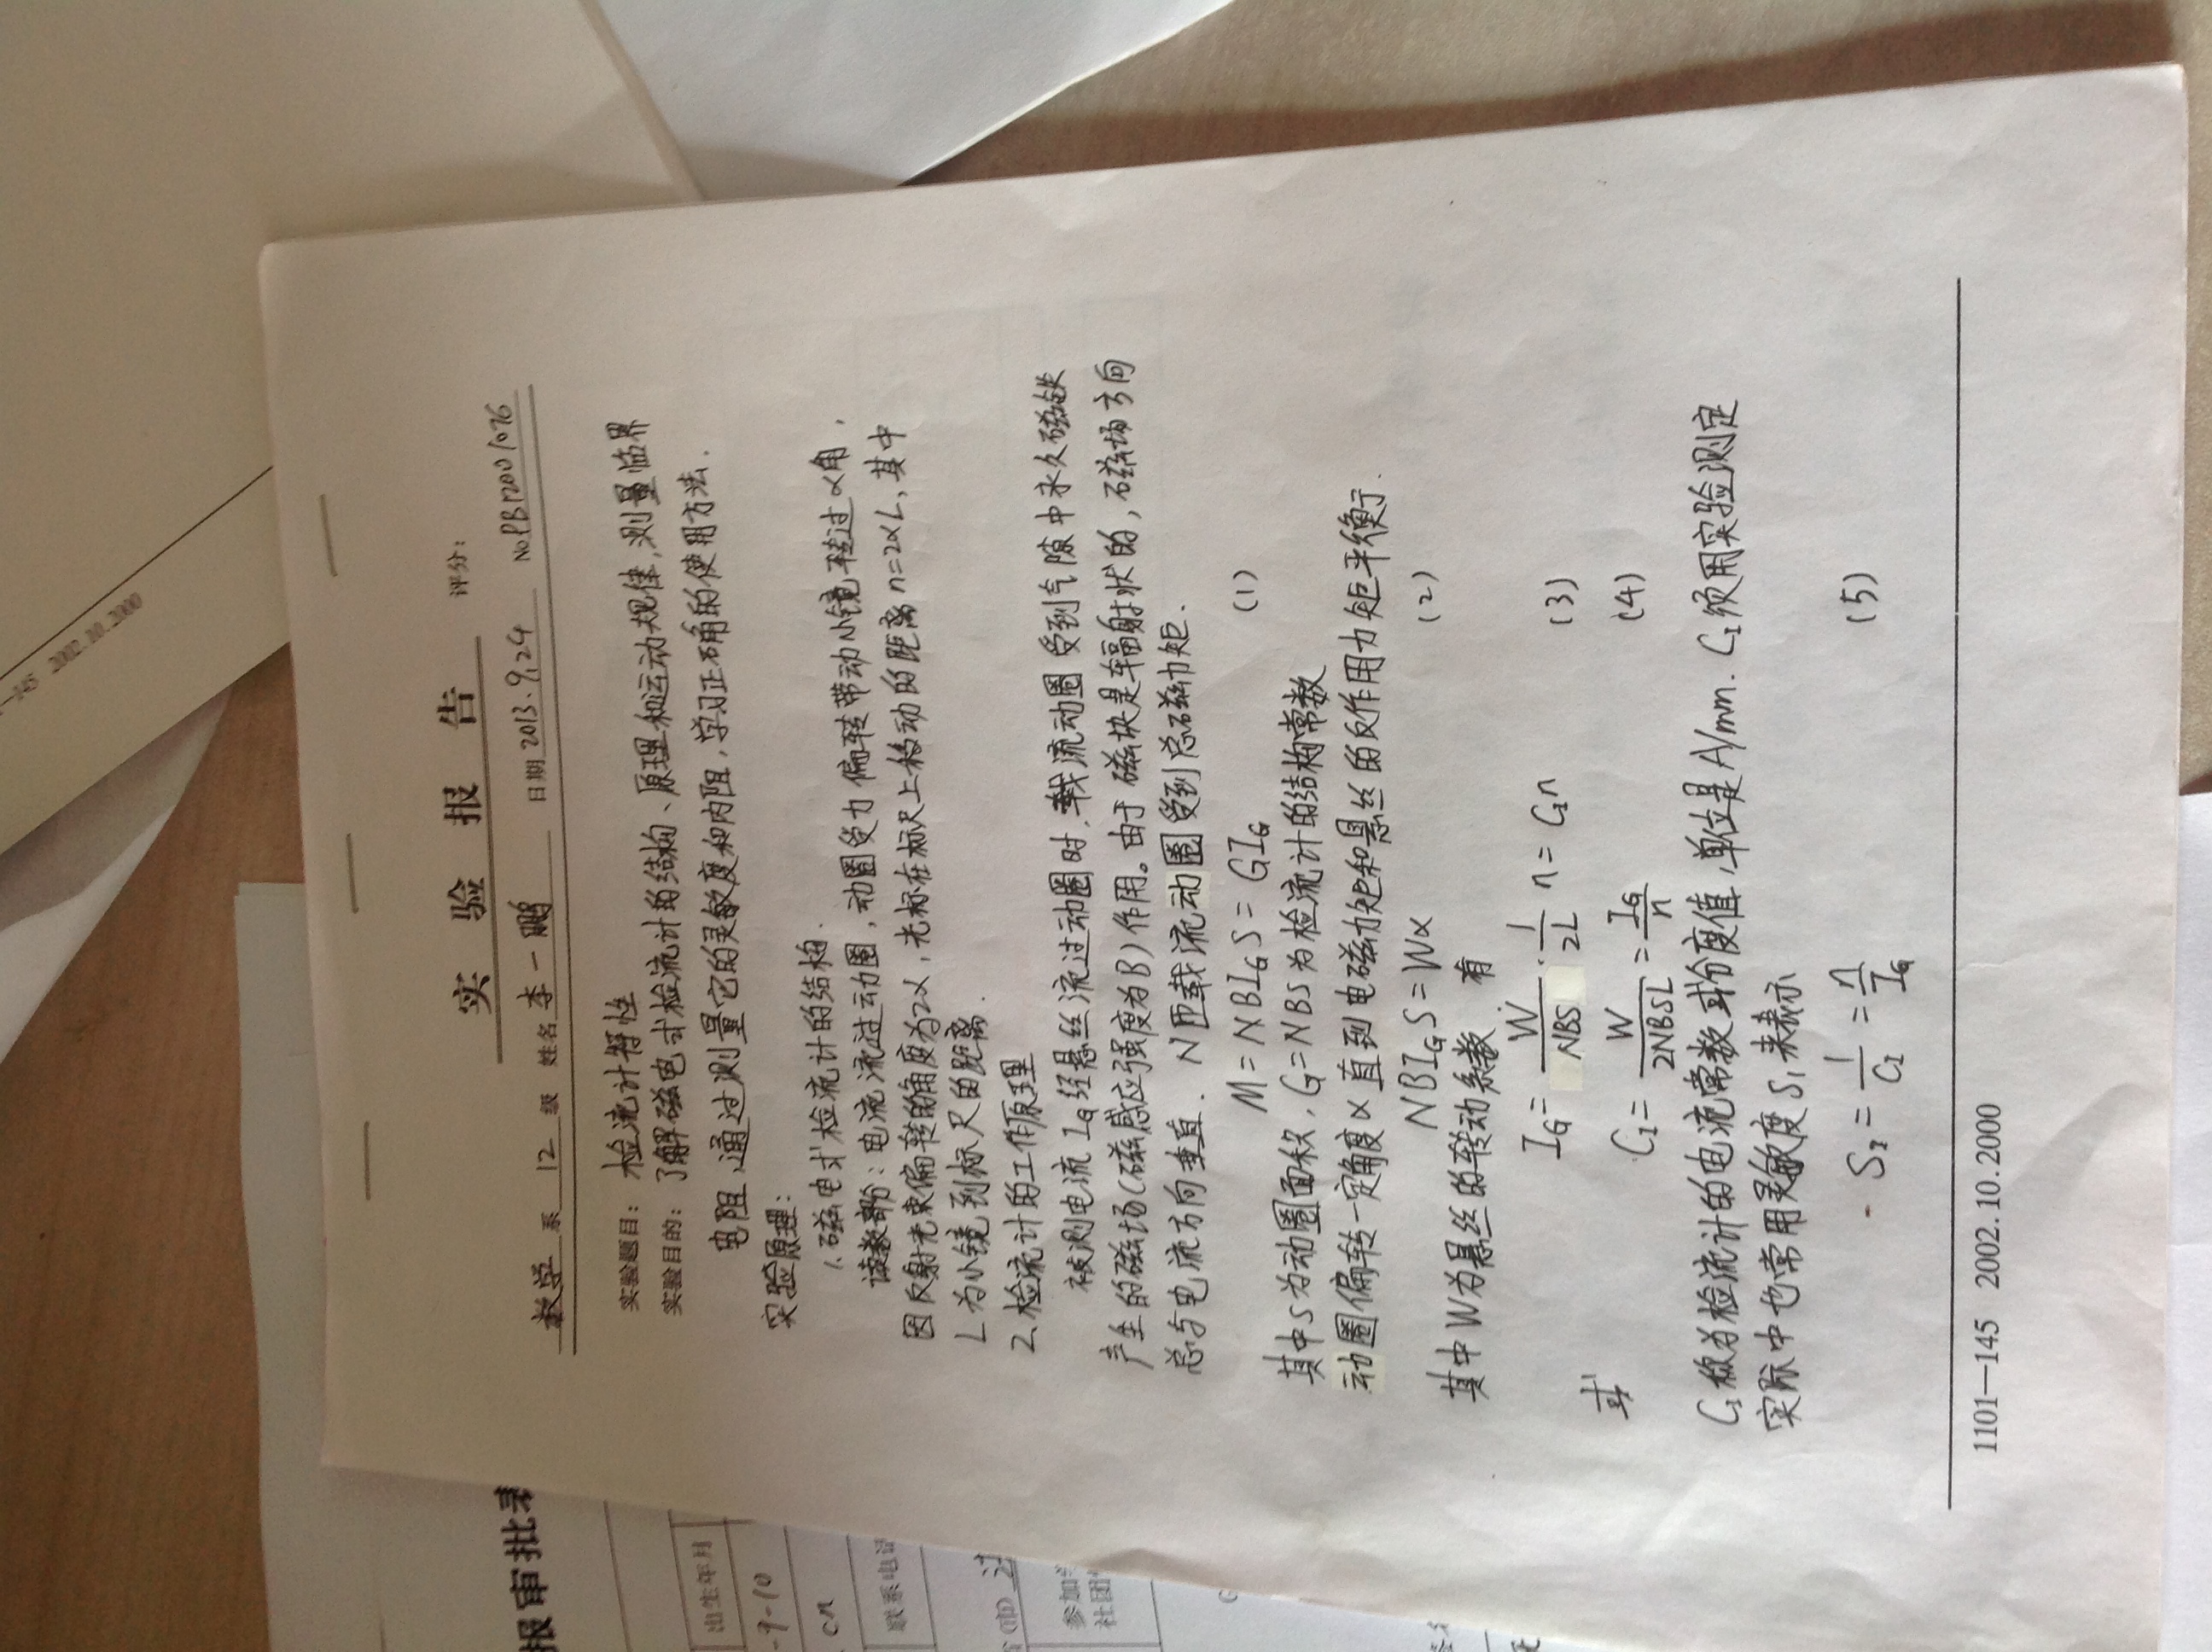 —145 2002.10.2000
报审批表
出生年月
-9-10
cn
联系电话
(市)
参加
社团
实验报告 评分:
数学 系 12 级 姓名 李一鹏 日期 2013.9.24 No PB12001076
实验题目: 检流计特性
实验目的: 了解磁电式检流计的结构、原理和运动规律,测量临界
电阻,通过测量它的灵敏度和内阻,学习正确的使用方法.
实验原理:
1.磁电式检流计的结构.
读数部分:电流流过动圈,动圈受力偏转带动小镜转过α角,
因反射光束偏转的角度为2α,光标在标尺上移动的距离n=2αL,其中
L为小镜到标尺的距离.
2.检流计的工作原理
被测电流IG经悬丝流过动圈时,载流动圈受到气隙中永久磁铁
产生的磁场(磁感应强度为B)作用。由于磁块是辐射状的,磁场方向
总与电流方向垂直. N匝载流动圈受到总磁力矩.
M=NBI_G S=GI_G (1)
其中S为动圈面积,G=NBS为检流计的结构常数
动圈偏转一定角度α直到电磁力矩和悬丝的反作用力矩平衡于.
NBI_G S=Wα (2)
其中W为悬丝的转动系数.有
I_G=W/NBS·1/2L n=C_I n (3)
或
C_I=W/2NBSL=I_G/n (4)
C_I称为检流计的电流常数或分度值,单位是A/mm. C_I须用实验测定
实际中也常用灵敏度S_I来表示
S_I=1/C_I=n/I_G (5)
1101—145 2002.10.2000